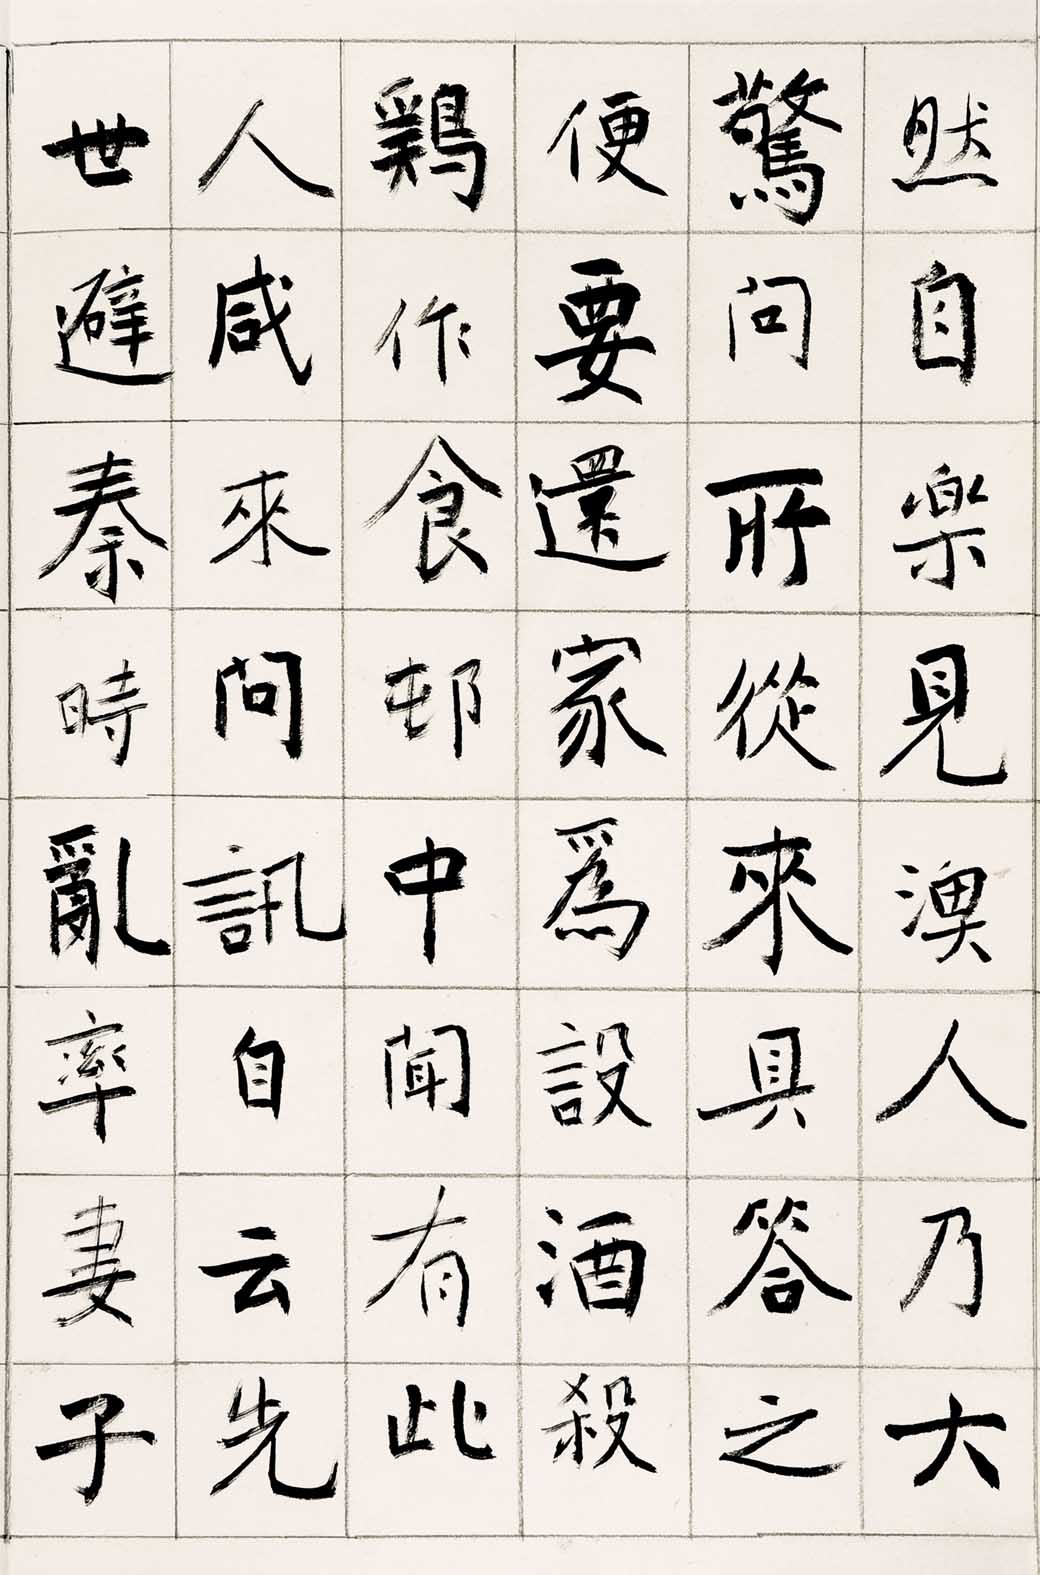 然自樂見渙人乃大
驚問所從來具答之
便要還家爲設酒殺
鶏作食邨中聞有此
人咸來問訊自云先
世避秦時亂率妻子